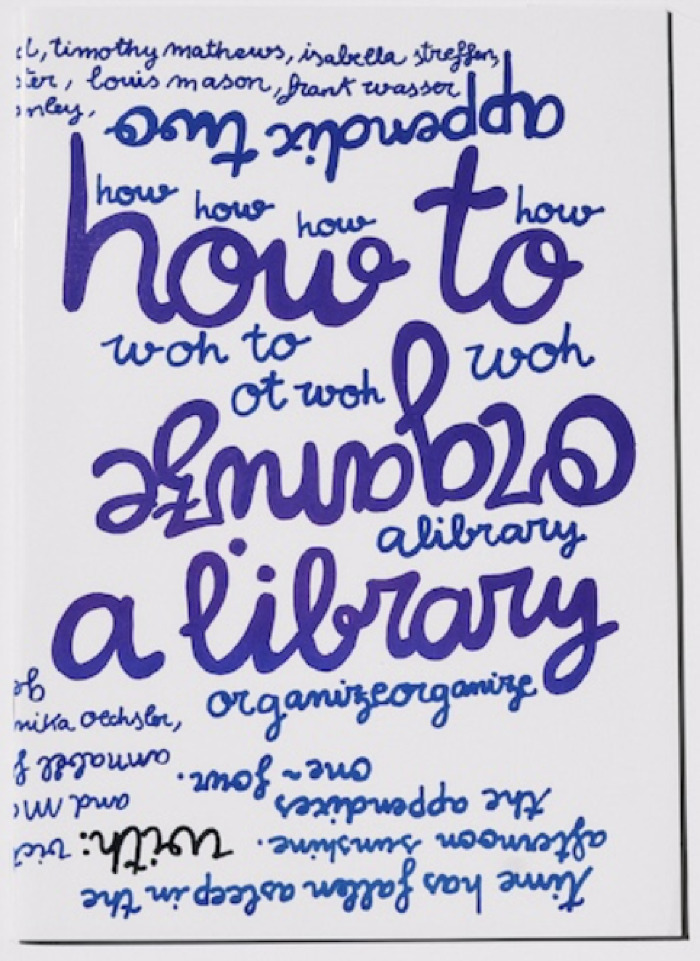 d, timothy mathews, isabella streffen,
ster, louis mason, frank wasser
anley,
appendix two
how how how how
how to
woh to woh
ot woh
organize
alibrary
a library
organizeorganize
nika oechsler,
time has fallen asleep in the
afternoon sunshine. with:
the appendixes
one~four.
and